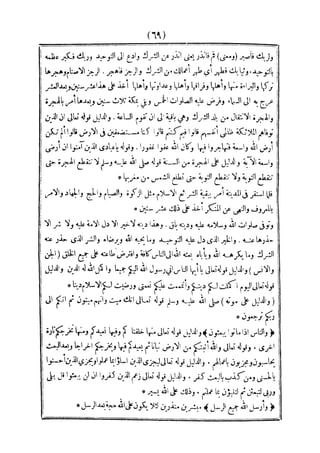 (٦٩)
ولربك فاصبر (ومعنى) قم فانذر ينذر عن الشرك ويدعو الى التوحيد وربك فكبر عظمه
بالتوحيد، وثيابك فطهر أي طهر أعمالك من الشرك والرجز فاهجر. الرجز الاصنام وهجرها
تركها والبراءة منها وأهلها أخذ على هذا عشر سنين وبعد العشر
عرج به الى السماء، وفرض عليه الصلوات الخمس وصلى بمكة ثلاث سنين وبعدها أمر بالهجرة
والهجرة الانتقال من بلد الشرك وهي باقية الى أن تقوم الساعة. والدليل قوله تعالى ان الذين
توفاهم الملائكة ظالمي أنفسهم قالوا فيم كنتم قالوا كنا مستضعفين في الارض قالوا ألم تكن
أرض الله واسعة فتهاجروا فيها وكان الله عفوا غفورا. وقوله ياعبادي الذين آمنوا ان أرضي
واسعة الآية والدليل على الهجرة من السنة قوله صلى الله عليه وسلم لا تنقطع الهجرة حتى
تنقطع التوبة ولا تنقطع التوبة حتى تطلع الشمس من مغربها *
فلما استقر في المدينة أمر ببقية الشرائع الاسلام مثل الزكاة والصيام والحج والجهاد والامر
بالمعروف والنهي عن المنكر أخذ على ذلك عشر سنين *
وتوفي صلوات الله وسلامه عليه ودينه باق. وهذا دينه لا خير الا دل الامة عليه ولا شر الا
حذرها عنه. والخير الذي دل عليه التوحيد وما يحبه الله ويرضاه والشر الذي حذر عنه
الشرك وما يكرهه الله ويأباه بعثه الله الى الناس كافة وافترض طاعته على جميع الخلق (الجن
والانس) والدليل قوله تعالى يا أيها الناس اني رسول الله اليكم جميعا وأكمل الله له الدين والدليل
قوله تعالى اليوم أكملت لكم دينكم وأتممت عليكم نعمتي ورضيت لكم الاسلام دينا *
(والدليل على موته) صلى الله عليه وسلم قوله تعالى انك ميت وانهم ميتون ثم انكم الى
ربكم ترجعون *
﴿والناس اذا ماتوا يبعثون﴾ والدليل قوله تعالى منها خلقناكم وفيها نعيدكم ومنها نخرجكم تارة
اخرى. وقوله تعالى والله أنبتكم من الارض نباتا ثم يعيدكم فيها ويخرجكم اخراجا وبعد البعث
يحاسبون ومجزيون باعمالهم. والدليل قوله تعالى ليجزي الذين اساؤا بما عملوا ويجزي الذين أحسنوا
بالحسنى ومن كذب بالبعث كفر. والدليل قوله تعالى زعم الذين كفروا ان لن يبعثوا قل بلى
وربي لتبعثن ثم لتنبؤن بما عملتم. وذلك على الله يسير *
﴿وأرسل الله جميع الرسل﴾ مبشرين منذرين لئلا يكون على الله حجة بعد الرسل *